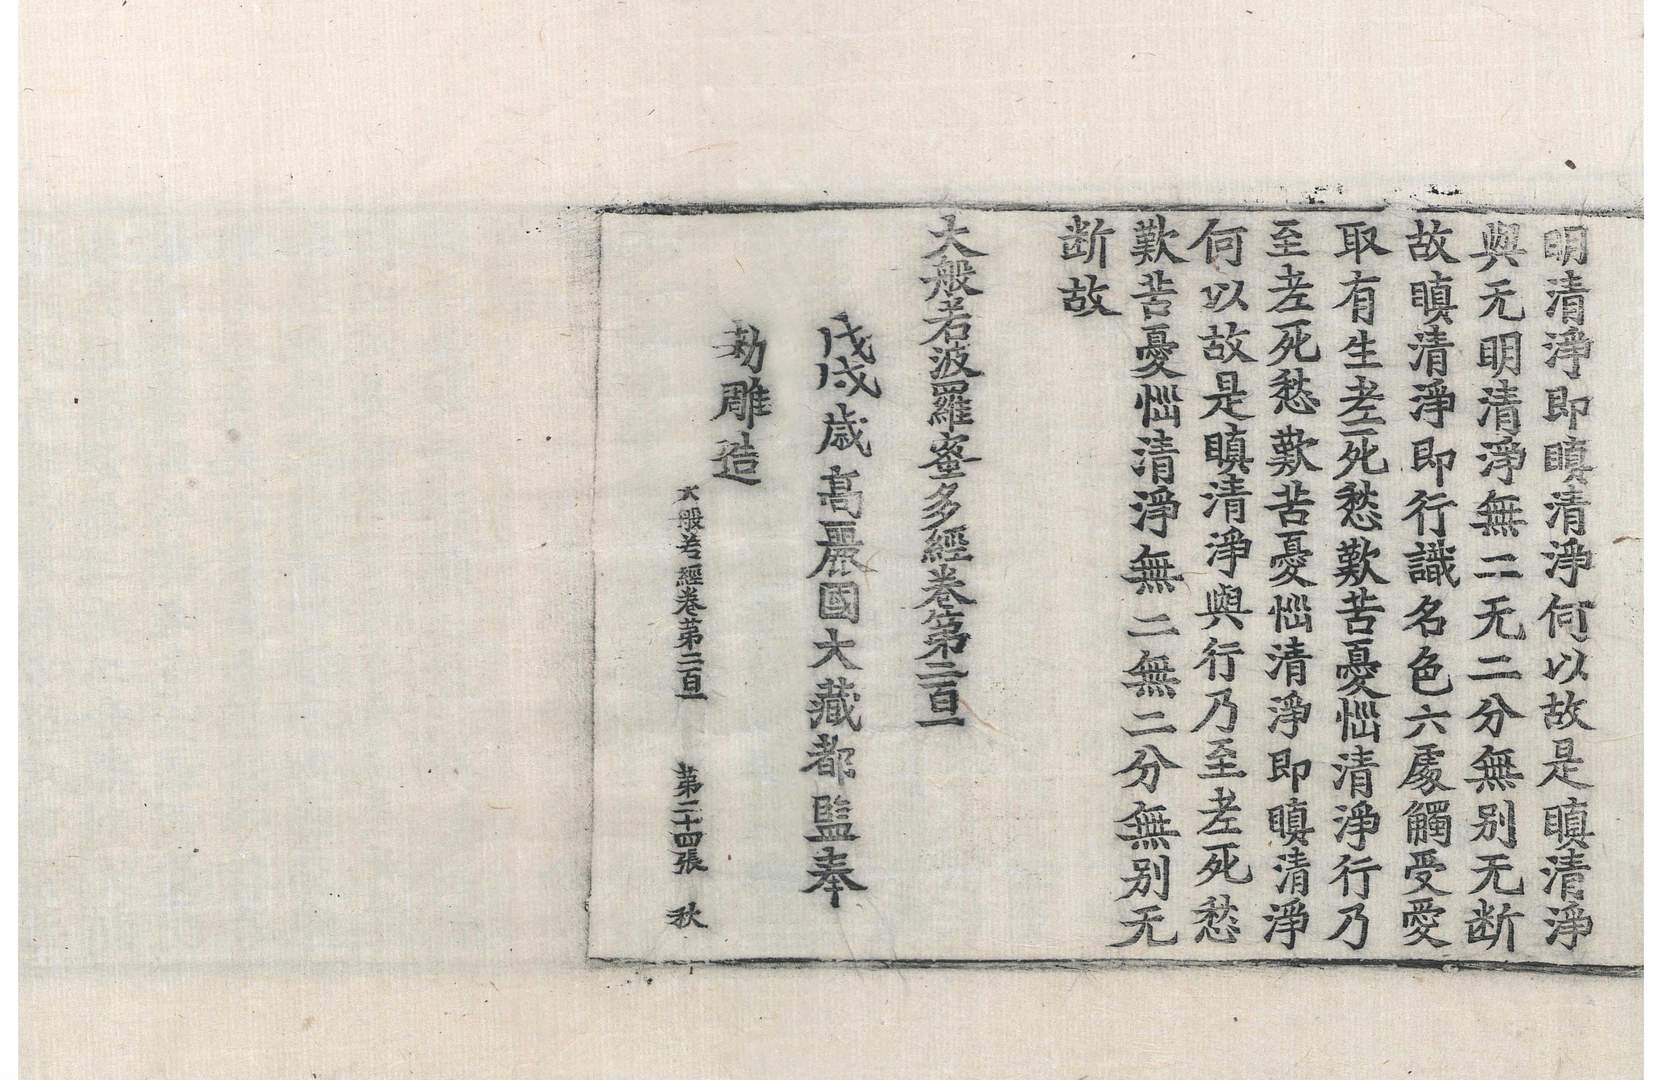 明清淨即瞋清淨何以故是瞋清淨
與无明清淨無二无二分無别无断
故瞋清淨即行識名色六處觸受愛
取有生老死愁歎苦憂惱清淨行乃
至老死愁歎苦憂惱清淨即瞋清淨
何以故是瞋清淨與行乃至老死愁
歎苦憂惱清淨無二無二分無别无
断故
大般若波羅蜜多經卷第二百一
戊戌歲高麗國大藏都監奉
勑雕造
大般若經卷第二百一 第二十四張 秋